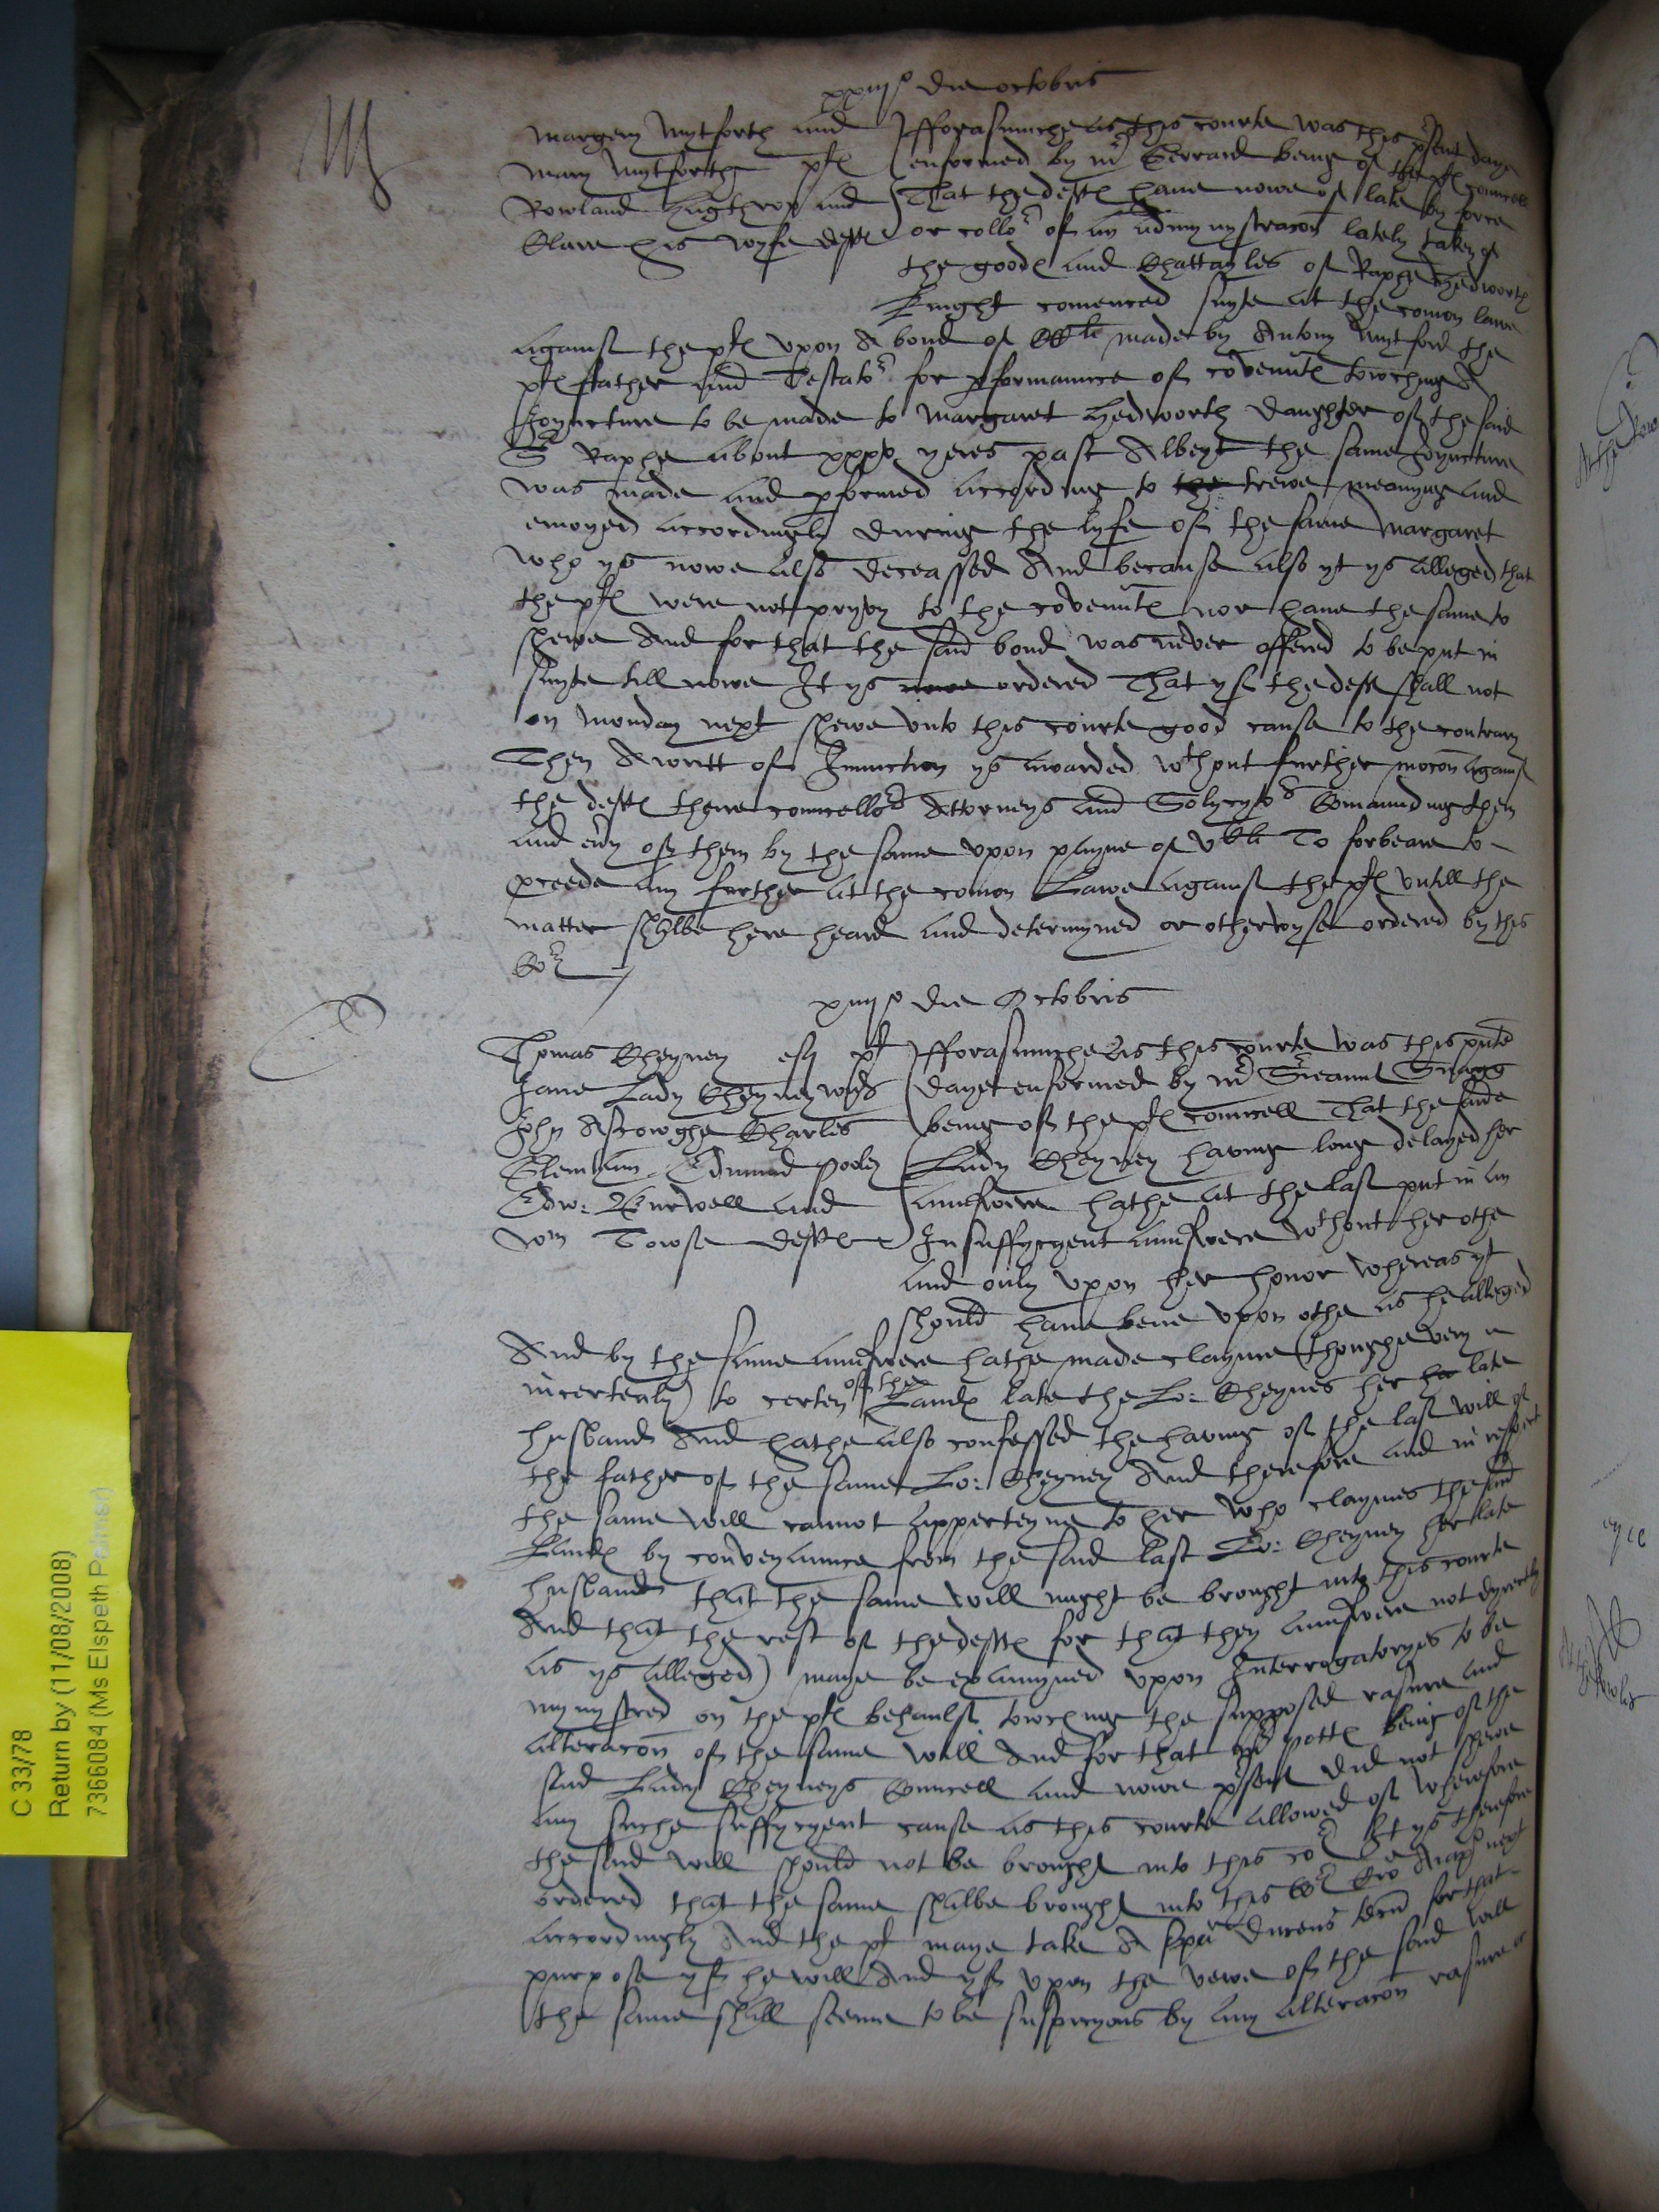 xxiijo die octobris
Margery Mytforth and
Mary Mytforthe pltes
Rowland Lugthrop and
Clare his wyfe deftes
fforasmuche as this courte was this psent daye
enformed by mr Gerrard being of the pltes councell
That the deftes haue nowe of late by force
or collor of an admynystracon lately taken of
the goodes and Chattayles of Raphe Hedworth
Knight comenced suyte at the comon lawe
against the pltes vpon A bond of made by Antony Mytford the
pltes ffather and Testator for pformaunce of covenntes towching A
Joyncture to be made to Margaret Hedworth daughter of the said
Sr Raphe about xxxv yeres past Albeyt the same Joyncture
was made and pformed according to the trewe meanyng and
enioyed accordingly during the lyfe of the same Margaret
who ys nowe also deceassed And because also yt ys alleged that
the pltes were not pryvy to the covenntes nor haue the same to
shewe And for that the said bond was never offered to be put in
suyte till nowe It ys nowe ordered That yf the deftes shall not
on monday next shewe vnto this courte good cause to the contrary
Then A writt of Iniunction ys awarded wthout further mocon against
the deftes there councellors Attorneys and Solycytors Comaunding them
and eury of them by the same vpon payne of vCli To forbeare to
pceede any further at the comon Lawe against the pltes vntill the
matter shalbe here heard and determyned or otherwyse ordered by this
Cor
xxiiijo die Octobris
Thomas Cheyney esq plt
Jane Lady Cheyney wyd
John Ascowghe Charles
Glemham Edmund Pooley
Edw: Burwell and
Wm Towse deftes
fforasmuche as this courte was this pnte
daye enformed by mr Sreaunt
being of the pltes councell That the saide
Lady Cheyney having long delayed her
aunswere hathe at the last put in an
Insuffycyent aunswere wthout her othe
and only vpon her honor whereas yt
should haue bene vpon othe as he alleged
And by the same aunswere hathe made clayme (thoughe very
incertenly) to certen of the Landes late the Lo: Cheyneis her her late
husband And hathe also confessed the having of the last will of
the father of the same Lo: Cheyney And therefore and in respect
the same will cannot apperteyne to her who claymes the said
Landes by conveyaunce from the said last Lo: Cheyney her late
husband that the same will might be brought into this courte
And that the rest of the deftes for that they aunswere not dyrectly
as ys alleged) maye be examyned vpon Interrogatoryes to be
mynystred on the pltes behaulf towching the supposed rasure and
alteracon of the same will And for that mr Pottes being of the
said Lady Cheyneys Councell and nowe psent did not shewe
any suche suffycyent cause as this courte allowed of wherefore
the said will should not be brought into this cor It ys therefore
ordered that the same shalbe brought into this Cor next
accordingly And the plt maye take A spa ducens tecm for that
purpose yf he will And yf vpon the vewe of the said will
the same shall seeme to be suspicyous by any alteracon rasure or
C 33/78
Return by (11/08/2008)
7366084 (Ms Elspeth Palmer)